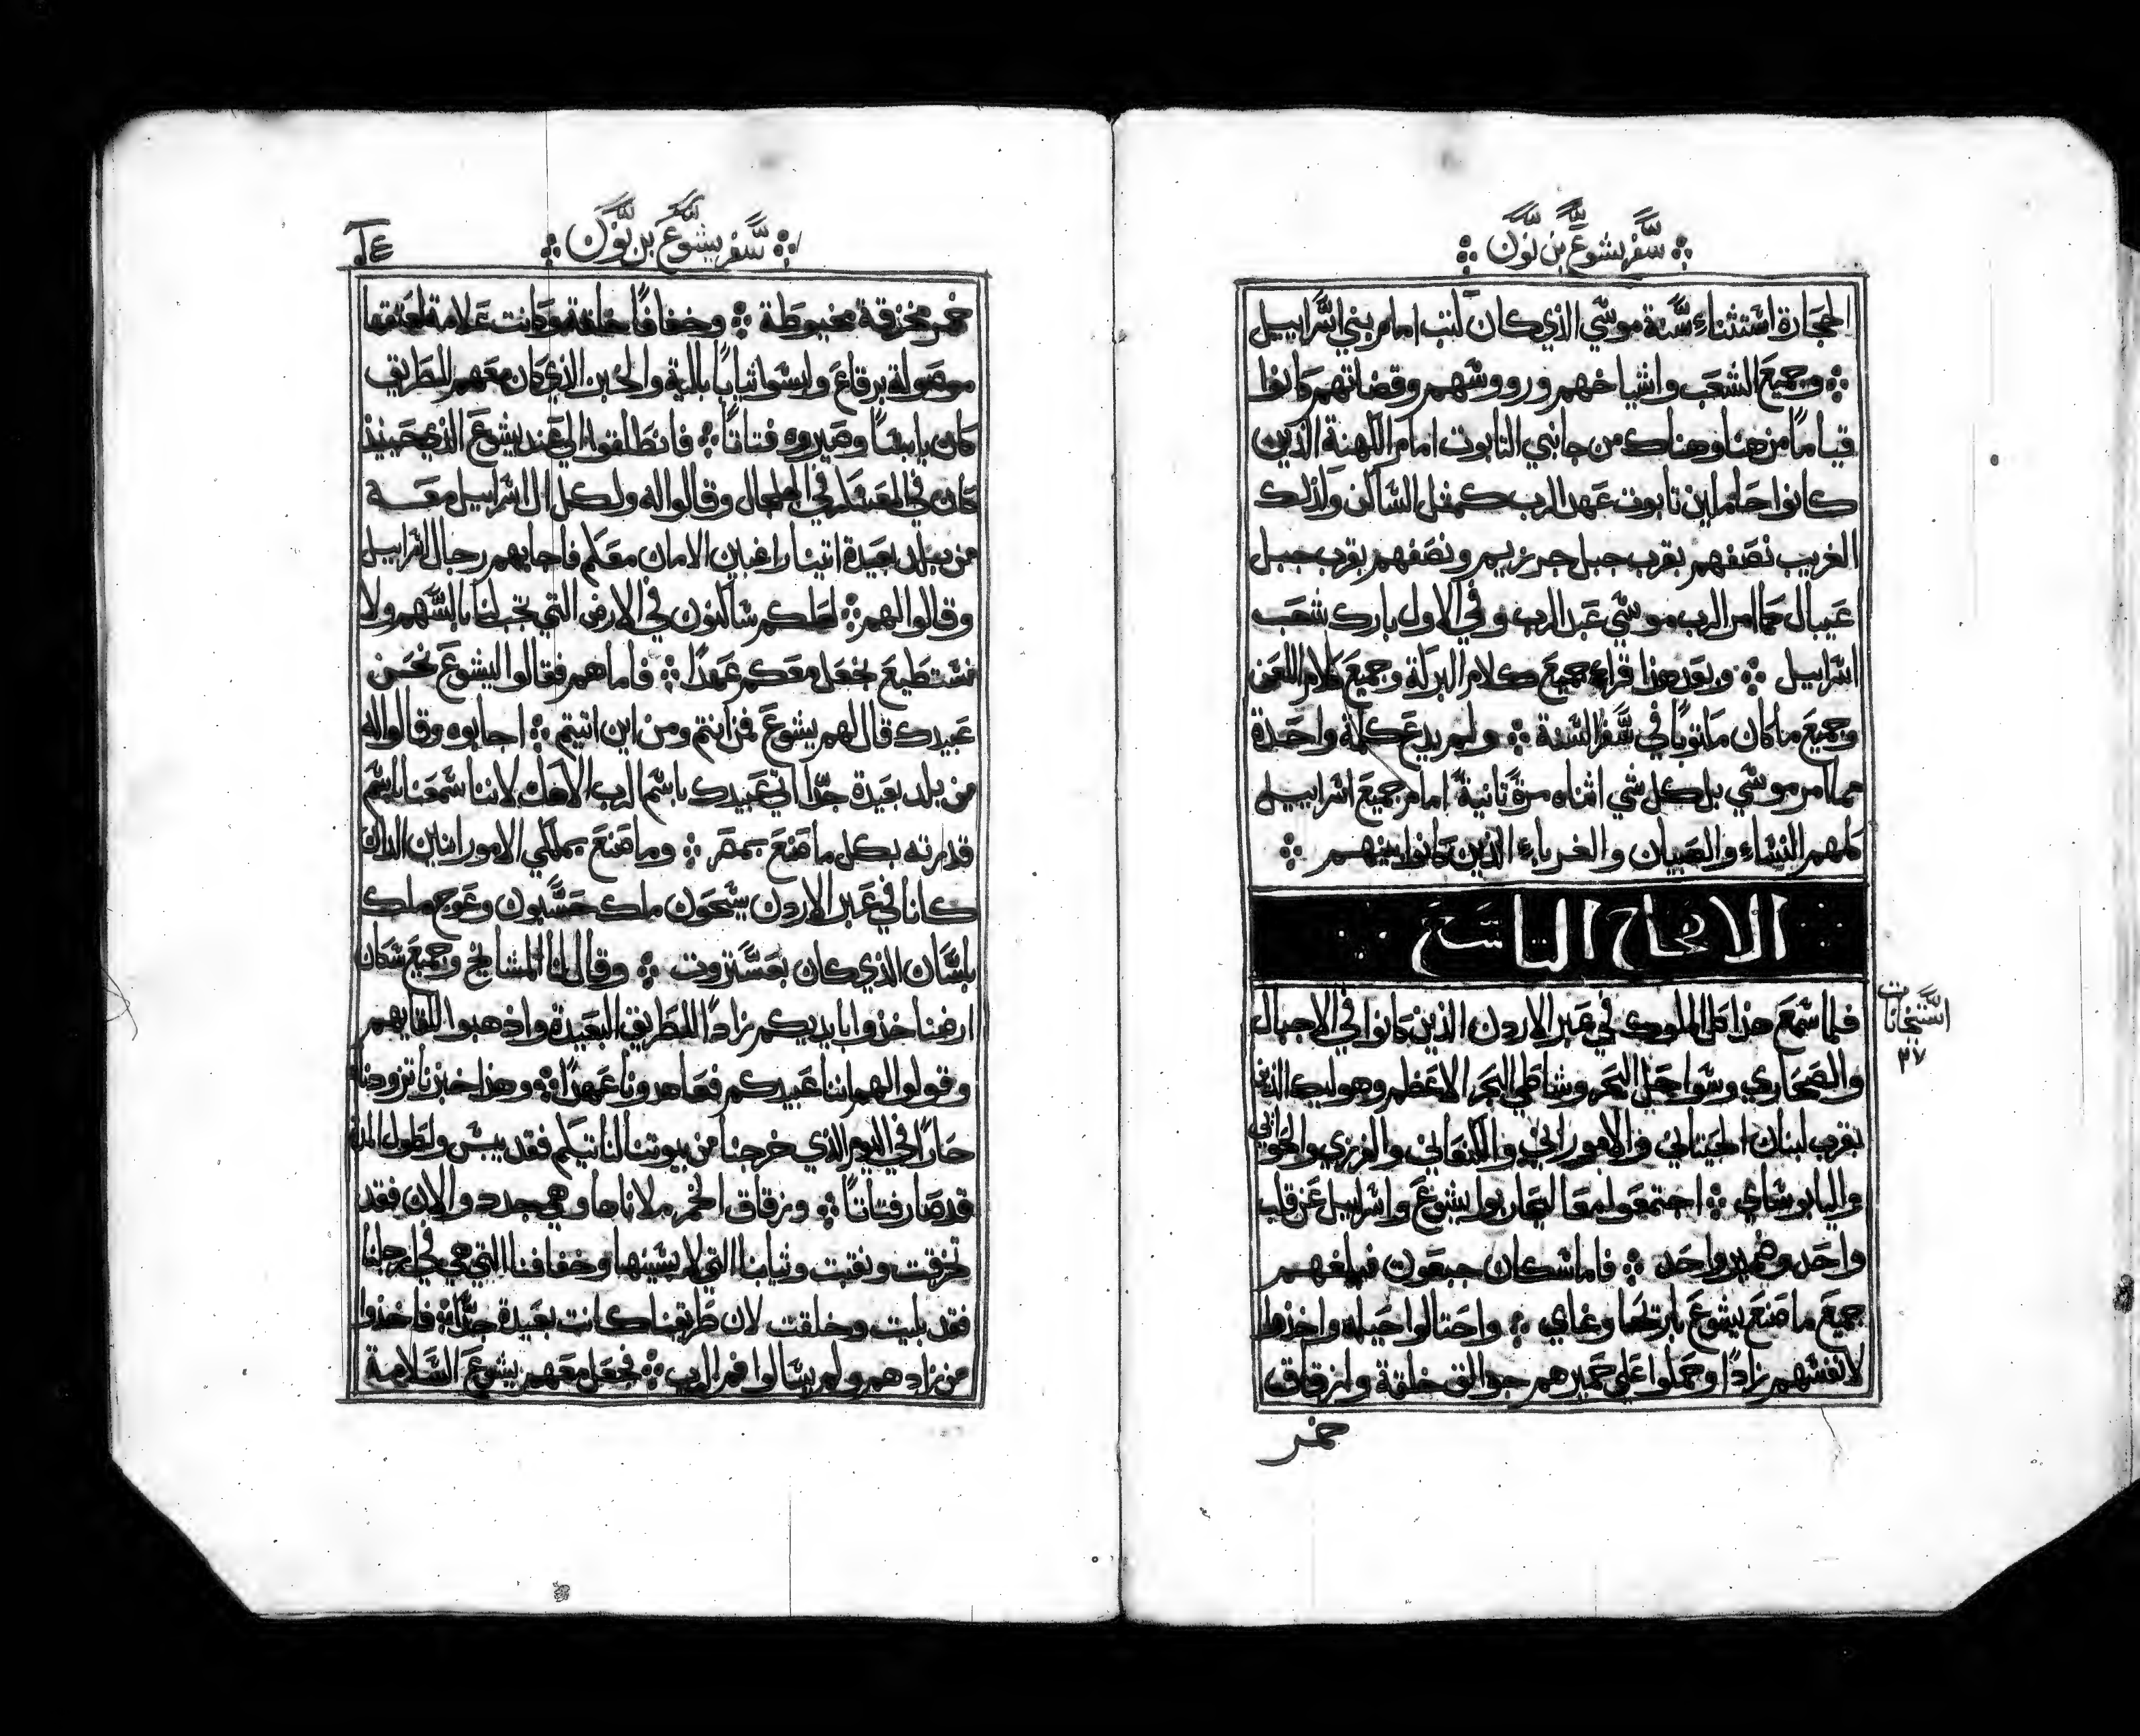 سفر يشوع بن نون
الحجارة استثناء سنة موسي الذي كان كتب امام بني اسراييل
وجميع الشعب واشياخهم ورووسهم وقضاتهم كانوا
قيامًا من هنا وهناك من جانبي التابوت امام الكهنة الذين
كانوا حاملين تابوت عهد الرب كمثل الساكن وكذلك
الغريب نصفهم بقرب جبل جرزيم ونصفهم بقرب جبل
عيبال كما امر الرب موسي عبد الرب وفي الاول بارك شعب
اسراييل وبعد هذا قراء جميع كلام البركة وجميع كلام اللعن
وجميع ما كان مكتوبًا في سفر السنة ولم يدع كلمة واحدة
مما امر موسي بل كل شي اثناه مرةً ثانيةً امام جميع اسراييل
كلهم النساء والصبيان والغرباء الذين كانوا بينهم
الاصحاح التاسع
فلما سمع هذا كل الملوك في عبر الاردن الذين كانوا في الاجبال
والصحاري وسواحل البحر وشاطي البحر الاعظم وهوليك الذين
بقرب لبنان الحيثاني والاموراني والكنعاني والفرزي والحواني
واليابوساي اجتمعوا معا ليحاربوا يشوع واسراييل عن قلب
واحد وضمير واحد فاما سكان جبعون فبلغهم
جميع ما صنع يشوع باريحا وغاي واحتالوا حيلة واخذوا
لانفسهم زادًا وحملوا علي حميرهم جوالق خلقة وازقاق
خمر
سفر يشوع بن نون
خمر مخزقة مخيوطة وخفافًا خلقة وكانت علامة لعتقها
موصولة برقاع ولبسوا ثيابًا بالية والخبز الذي كان معهم للطريق
كان يابسًا وصيروه فتاتًا فانطلقوا الي عند يشوع الذي حينيذ
كان في العسكر في الجلجال وقالوا له ولكل ال اسراييل معه
من بلد بعيدة اتينا راغبين الامان معكم فاجابهم رجال اسراييل
وقالوا لهم لعلكم ساكنون في الارض التي تجب لنا بالسهم ولا
نستطيع نجعل معكم عهدًا فاما هم فقالوا ليشوع نحن
عبيدك قال لهم يشوع فمن انتم ومن اين اتيتم اجابوه وقالوا له
من بلد بعيدة جدًّا اتي عبيدك باسم الرب الاهك لاننا سمعنا باسم
قدرته بكل ما صنع بمصر وما صنع بملكي الامورانيين الذان
كانا في عبر الاردن سيحون ملك حسبون وعوج ملك
باسان الذي كان بعستروت وقال لنا المشايخ وجميع سكان
ارضنا خذوا بايديكم زادًا للطريق البعيدة واذهبوا للقايهم
وقولوا لهم اننا عبيدكم فعاهدونا عهدًا وهذا خبزنا تزودناه
حارًا في اليوم الذي خرجنا من بيوتنا لناتيكم فقد يبس ولطول المدة
قد صار فتاتًا وزقاق الخمر ملاناها وهي جدد والان فقد
تخزقت ونقبت وثيابنا التي لابسينها وخفافنا التي هي في ارجلنا
فقد بليت وخلقت لان طريقنا كانت بعيدة جدًّا فاخذوا
من زادهم ولم يسالوا فم الرب فجعل معهم يشوع السلامة